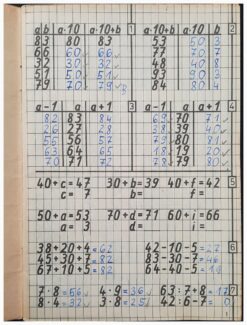 a b a·10 a·10+b 1 a·10+b a·10 b 2
83 80 83 53 50 3
66 60 66 77 70 7
32 30 32 48 40 8
51 50 51 93 90 3
79 70 79 84 80 4
a-1 a a+1 3 a-1 a a+1 4
82 83 84 69 70 71
26 27 28 38 39 40
55 56 57 79 80 81
63 64 65 18 19 20
70 71 72 78 79 80
40+c=47 30+b=39 40+f=42 5
c=7 b= f=
50+a=53 70+d=71 60+i=66
a=3 d= i=
38+20+4=62 42-10-5=27 6
45+30+7=82 83-30-7=46
67+10+5=82 64-40-5=19
7·8=56 4·9=36 63:7+8=17 7
8·4=32 3·8=24 42:6-7=0